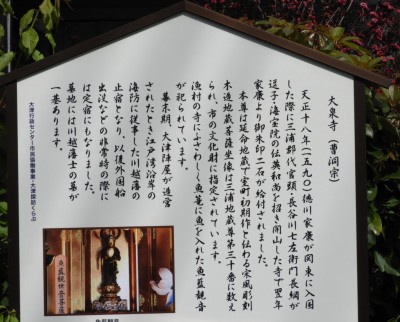 大泉寺（曹洞宗）
天正十八年（一五九〇）徳川家康が関東に入国
した際に三浦郡代官頭・長谷川七左衛門長綱が
逗子・海宝院の伝英和尚を招き開山した寺で翌年
家康より御朱印二石が給付されました。
本尊は延命地蔵で室町初期作と伝わる宋風彫刻
木造地蔵菩薩坐像は三浦地蔵尊第三十番に数え
られ、市の文化財に指定されています。
漁村の寺にふさわしく魚籃に魚を入れた魚籃観音
が祀られています。
幕末期、大津陣屋が造営
されたとき江戸湾沿岸の
海防に従事した川越藩の
止宿となり、以後外国船
出没などの非常時の際に
は定宿にもなりました。
墓地には川越藩士の墓が
一基あります。
大津行政センター市民協働事業・大津探訪くらぶ
魚籃観世音菩薩
魚籃観音